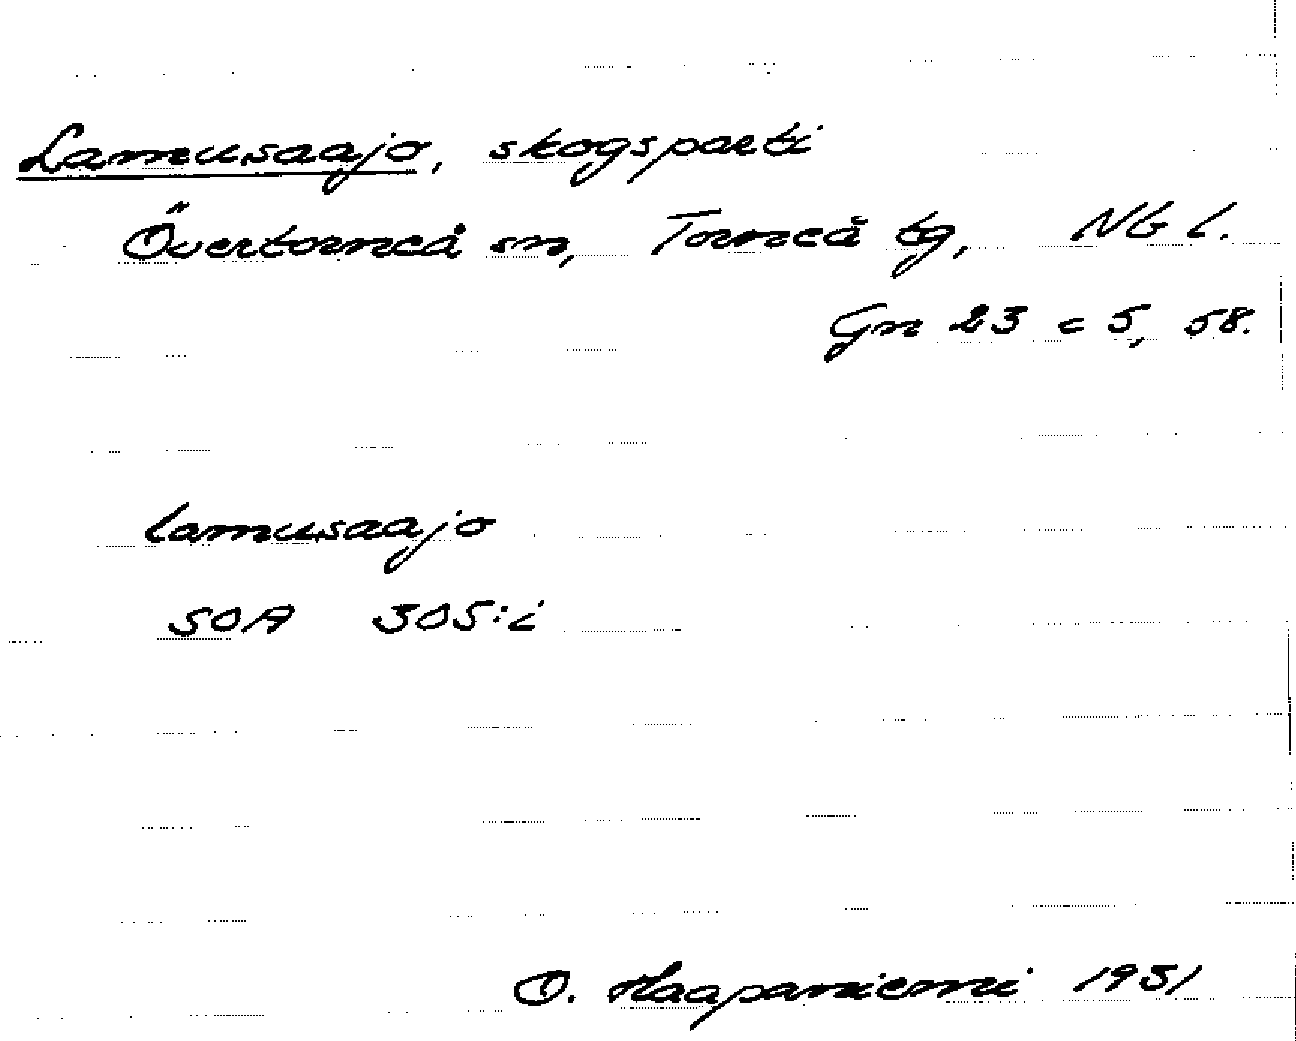 Lamusaajo, skogsparti
Övertorneå sn, Torneå tg, NB l.
Gn 23 c 5, 58.
lamusaajo
SOA 305:i
O. Haapaniemi 1951